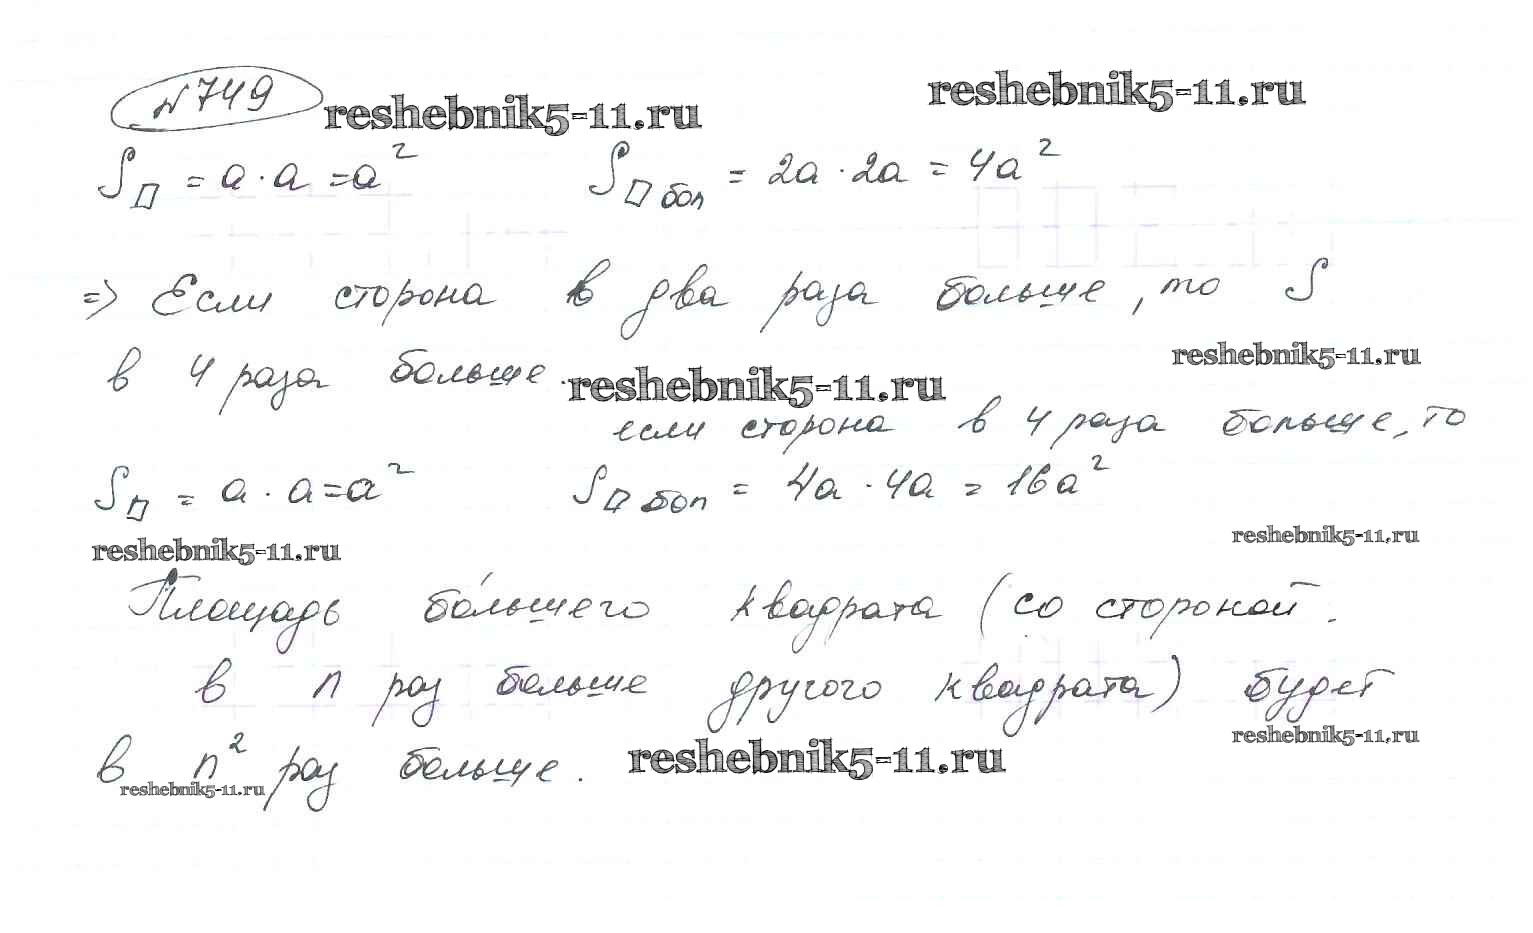 №749 reshebnik5-11.ru reshebnik5-11.ru
S□ = a · a = a² S□ бол = 2a · 2a = 4a²
=> Если сторона в два раза больше, то S
в 4 раза больше. reshebnik5-11.ru reshebnik5-11.ru
если сторона в 4 раза больше, то
S□ = a · a = a² S□ бол = 4a · 4a = 16a²
reshebnik5-11.ru reshebnik5-11.ru
Площадь бо́льшего квадрата (со стороной
в n раз больше другого квадрата) будет
reshebnik5-11.ru
в n² раз больше. reshebnik5-11.ru
reshebnik5-11.ru